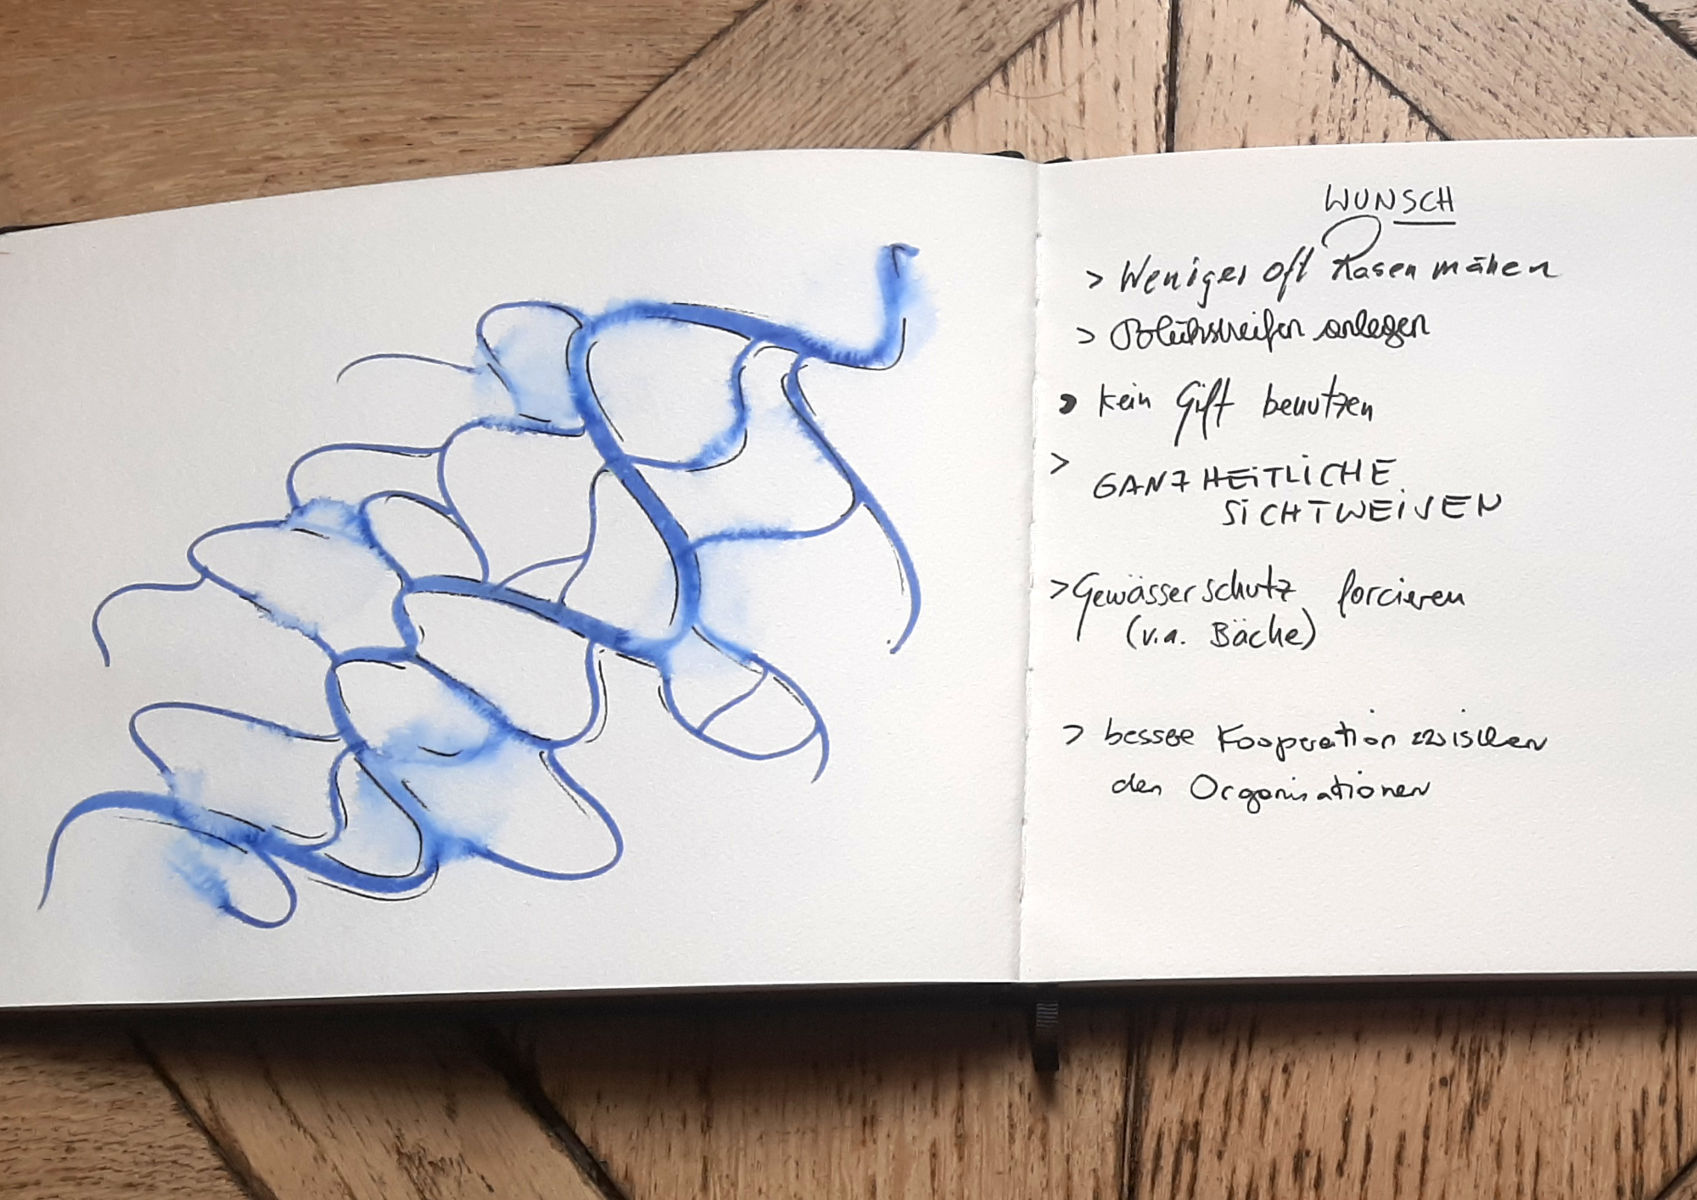 WUNSCH
> Weniger oft Rasen mähen
> Blühstreifen anlegen
> kein Gift benutzen
> GANZHEITLICHE
SICHTWEISEN
> Gewässerschutz forcieren
(v.a. Bäche)
> bessere Kooperation zwischen
den Organisationen